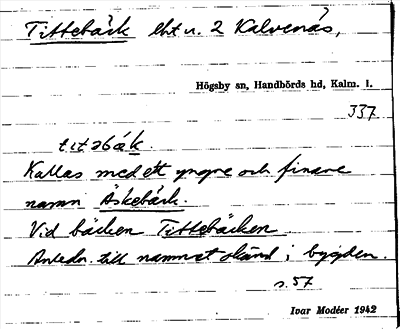 Tittebäck lht u. 2 Kalvenäs,
Högsby sn, Handbörds hd, Kalm. l.
337
t ɩ t əbák.
Kallas med ett yngre och finare
namn Äskebäck.
Vid bäcken Tittebäcken
Anledn. till namnet okänd i bygden.
s. 57
Ivar Modéer 1942